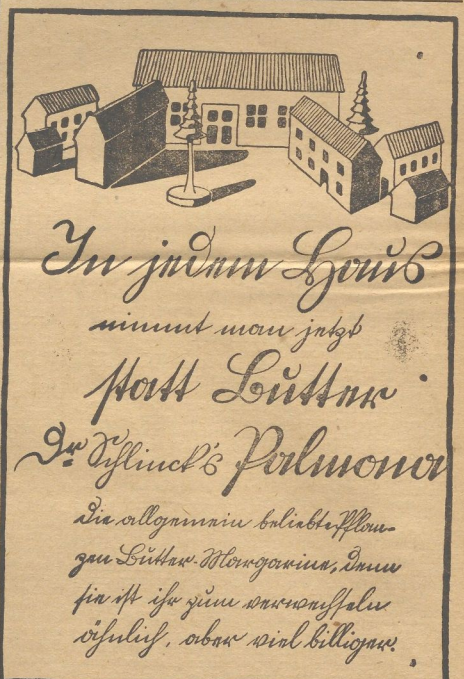 In jedem Haus
nimmt man jetzt
statt Butter
Dr. Schlinck's Palmona
die allgemein beliebte Pflan-
zen-Butter-Margarine, denn
sie ist ihr zum verwechseln
ähnlich, aber viel billiger.